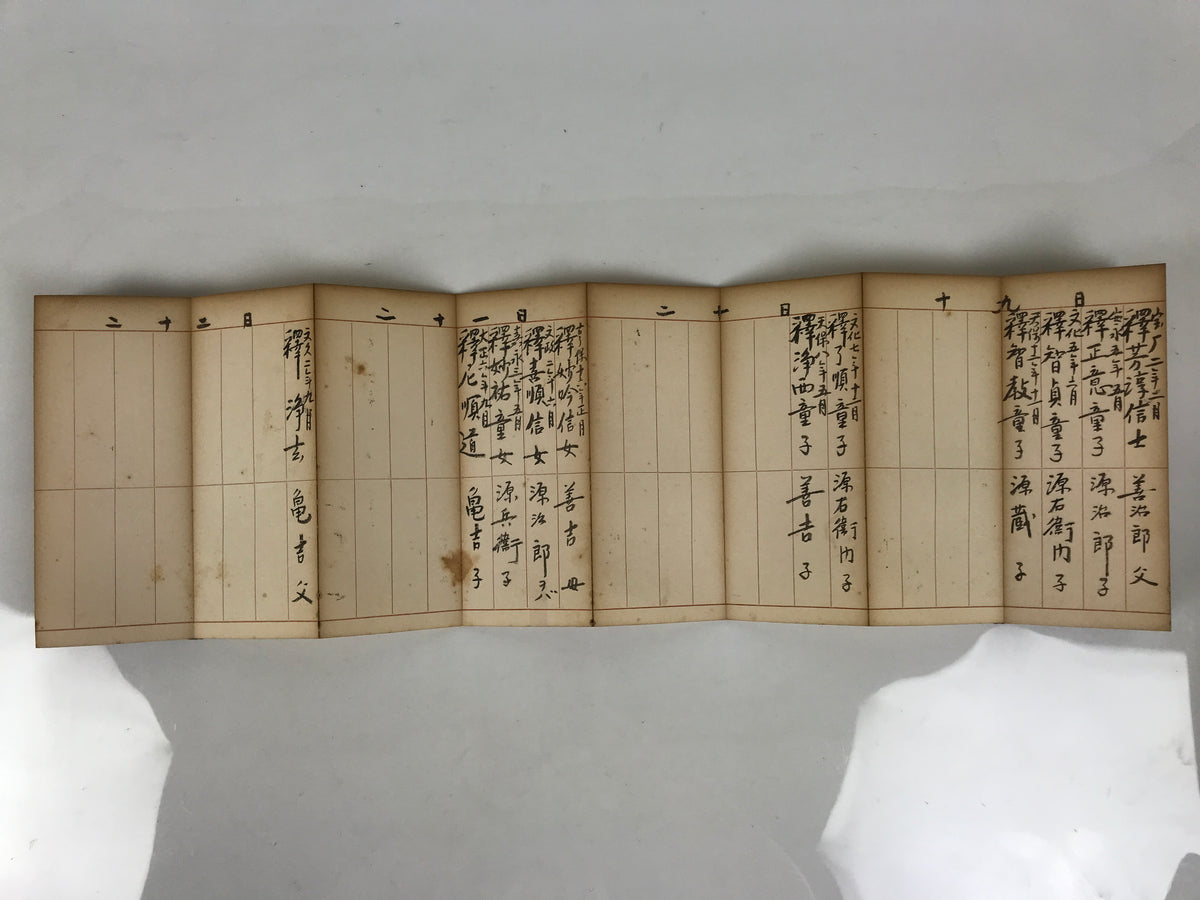 十九日
二年二月
釋芳淳信士 善治郎父
宝永五年五月
釋正意童子 源治郎子
文化五年二月
釋智貞童子 源右衛門子
釋智教童子 源蔵子
二十日
文化七年十二月
釋了順童子 源右衛門子
天保八年五月
釋浄西童子 善吉子
二十一日
年正月
釋妙吟信女 善吉母
釋喜順信女 源治郎
嘉永三年五月
釋妙祐童女 源兵衛子
大正六年九月
釋尼順道 亀吉子
二十二日
文久二年九月
釋浄玄 亀吉父